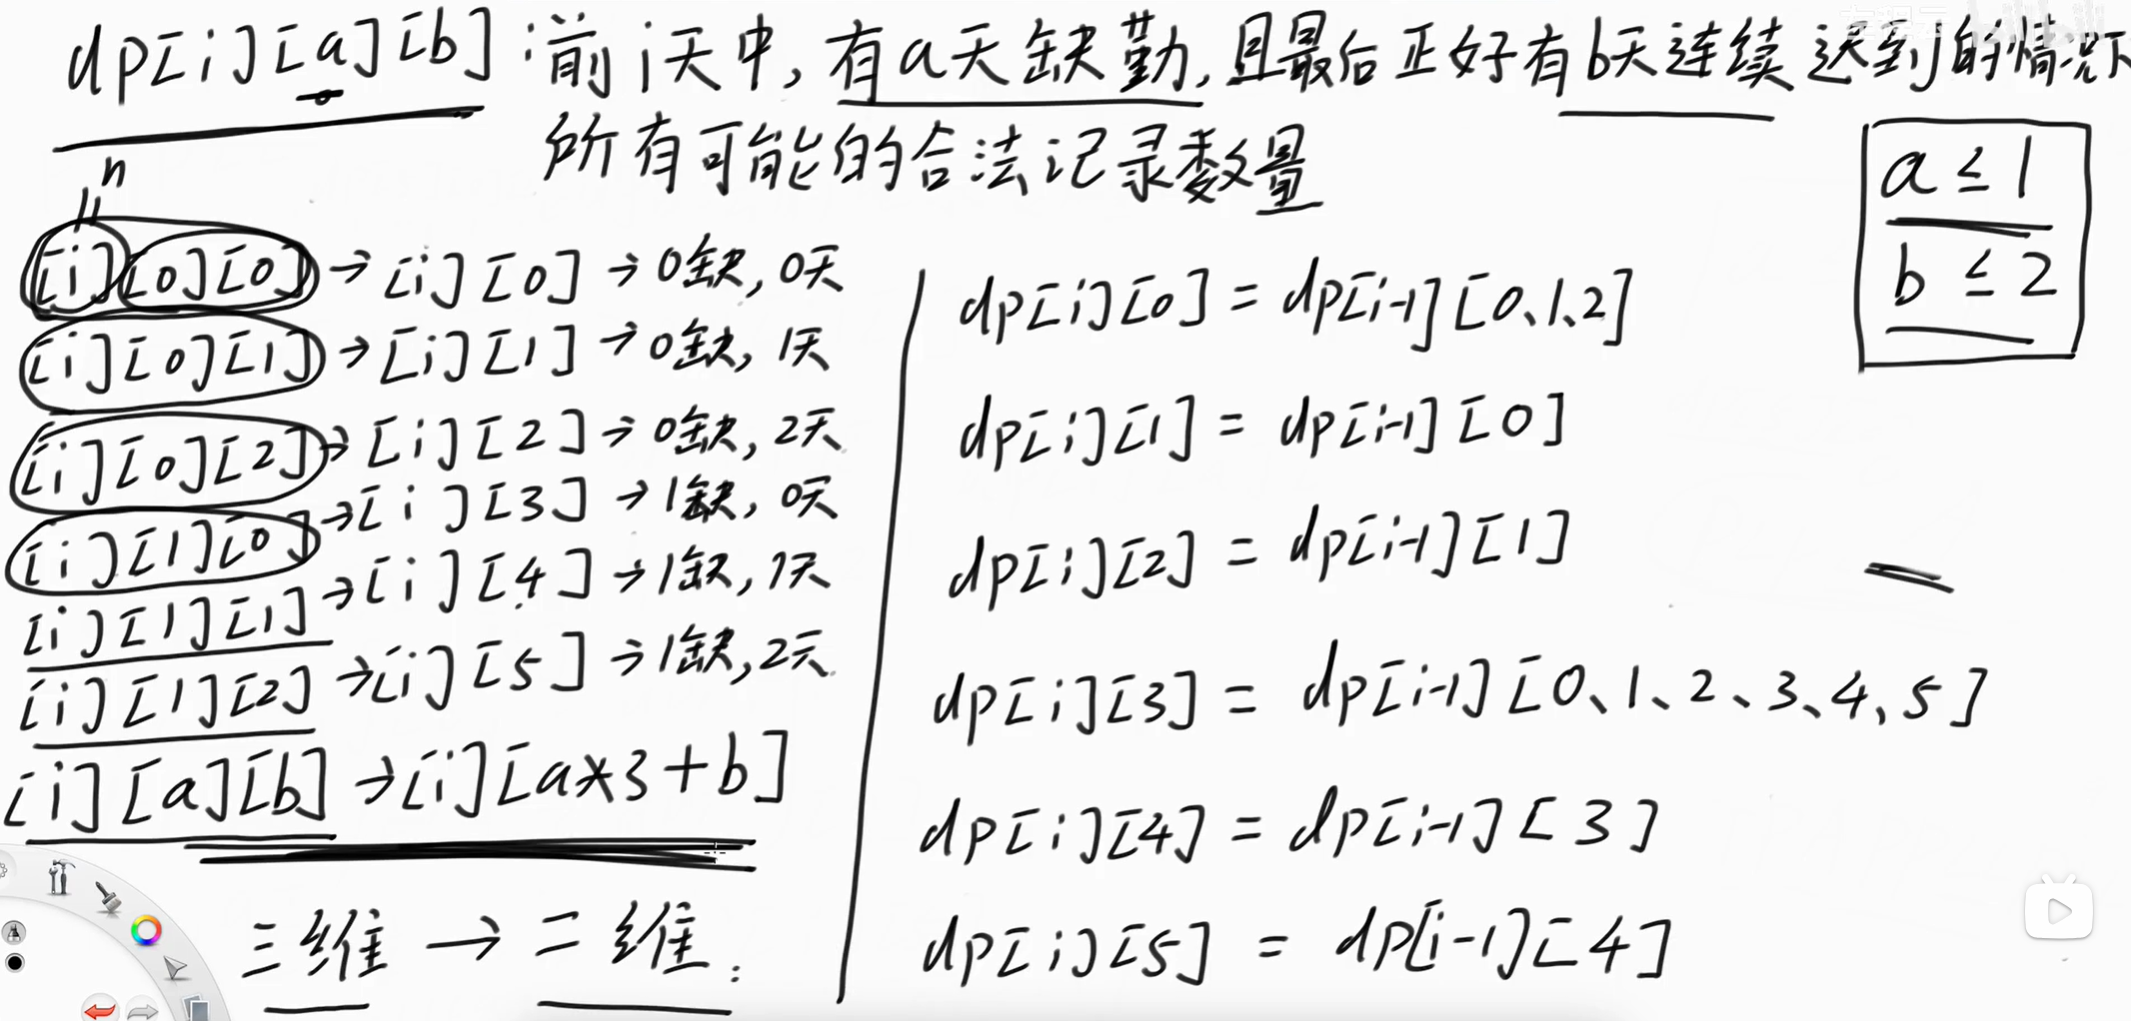 dp[i][a][b]:前i天中,有a天缺勤,且最后正好有b天连续迟到的情况下
所有可能的合法记录数量
a ≤ 1
b ≤ 2
n
[i][0][0] → [i][0] → 0缺, 0天
[i][0][1] → [i][1] → 0缺, 1天
[i][0][2] → [i][2] → 0缺, 2天
[i][1][0] → [i][3] → 1缺, 0天
[i][1][1] → [i][4] → 1缺, 1天
[i][1][2] → [i][5] → 1缺, 2天
[i][a][b] → [i][a*3+b]
三维 → 二维.
dp[i][0] = dp[i-1][0、1、2]
dp[i][1] = dp[i-1][0]
dp[i][2] = dp[i-1][1]
dp[i][3] = dp[i-1][0、1、2、3、4、5]
dp[i][4] = dp[i-1][3]
dp[i][5] = dp[i-1][4]